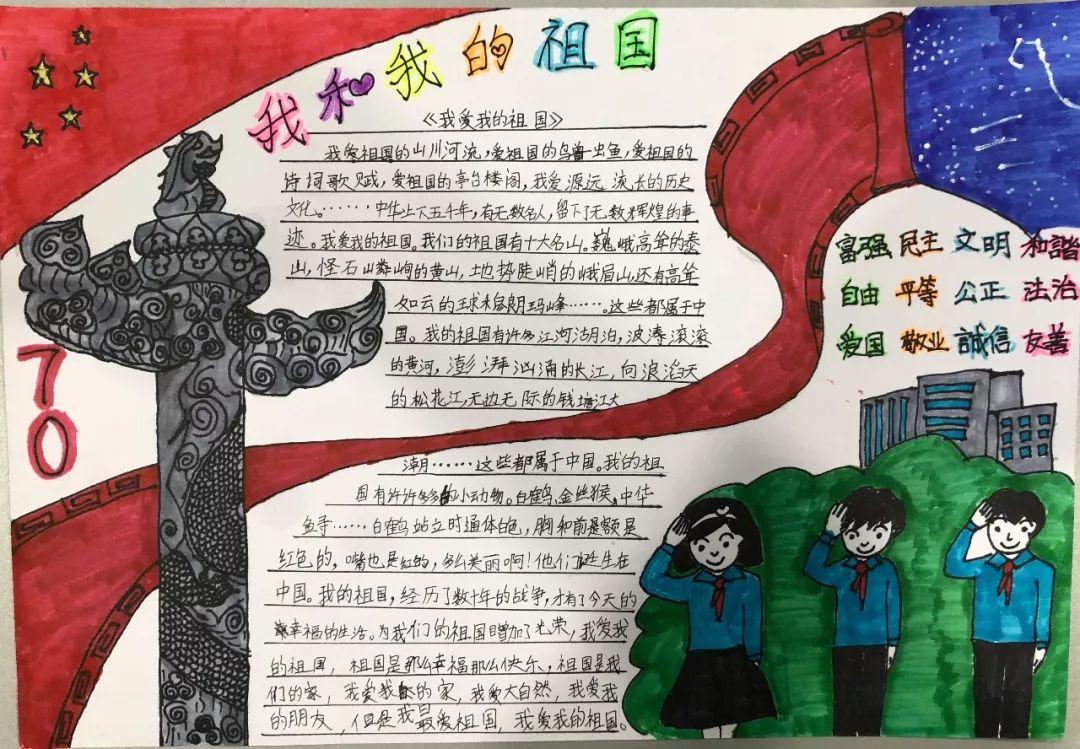 我和我的祖国
《我爱我的祖国》
我爱祖国的山川河流，爱祖国的鸟兽虫鱼，爱祖国的
诗词歌赋，爱祖国的亭台楼阁，我爱源远流长的历史
文化。……中华上下五千年，有无数名人，留下了无数辉煌的事
迹。我爱我的祖国。我们的祖国有十大名山。巍峨高耸的泰
山，怪石嶙峋的黄山，地势陡峭的峨眉山还有高耸
如云的球穆朗玛峰……这些都属于中
国。我的祖国有许多江河湖泊，波涛滚滚
的黄河，澎湃汹涌的长江，向浪滔天
的松花江，无边无际的钱塘江大
潮……这些都属于中国。我的祖
国有许许多多的小动物。白鹤、金丝猴、中华
鱼……白鹤站立时通体白色，胸和前是额是
红色的，嘴也是红的，多么美丽啊！他们都生在
中国。我的祖国，经历了数十年的战争，才有了今天的
幸福的生活。为我们的祖国增加了光荣，我爱我
的祖国，祖国是那么幸福那么快乐，祖国是我
们的家，我爱我的家，我爱大自然，我爱我
的朋友，但是我最爱祖国，我爱我的祖国。
70
富强 民主 文明 和諧
自由 平等 公正 法治
爱国 敬业 誠信 友善